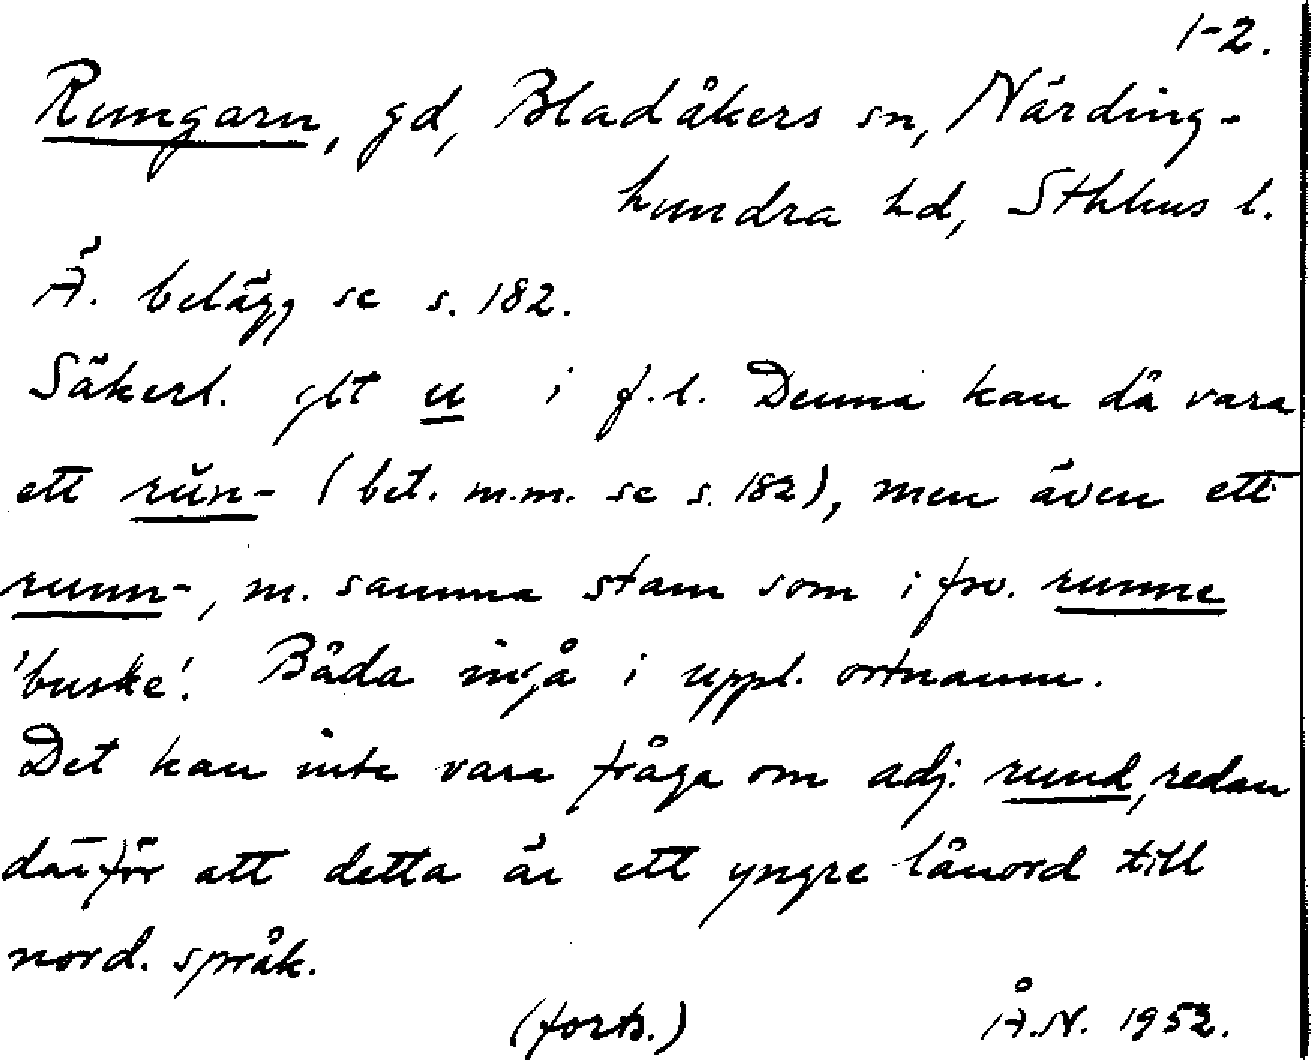 1-2.
Rungarn, gd, Bladåkers sn, Närding-
hundra hd, Sthlms l.
Ä. belägg se s. 182.
Säkerl. glt u i f.l. Denna kan då vara
ett rŭn- (bet. m.m. se s. 182), men även ett
runn-, m. samma stam som i fsv. runne
'buske'. Båda ingå i uppl. ortnamn.
Det kan inte vara fråga om adj. rund, redan
därför att detta är ett yngre lånord till
nord. språk.
(forts.) Å.N. 1952.